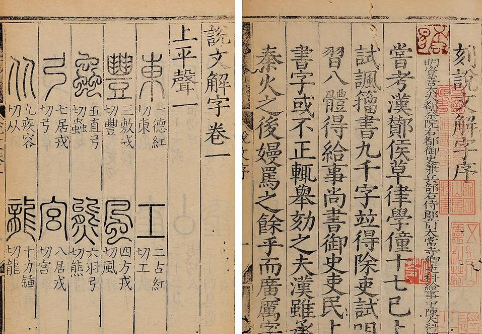 刻說文解字序
嘗考漢鄭侯草律學僮十七已
試諷籀書九千字並得除吏試
習八體得給事尚書御史吏民上
書字或不正輒舉劾之夫漢雖承
秦火之後嫚罵之餘乎而廣厲字
說文解字卷一
上平聲一
東 一德紅切東 工 二古紅切工
豐 三敷戎切豐 風 四方戎切風
蟲 五直弓切蟲 熊 六羽弓切熊
弓 七居戎切弓 宮 八居戎切宮
从 九疾容切从 龍 十力鍾切龍